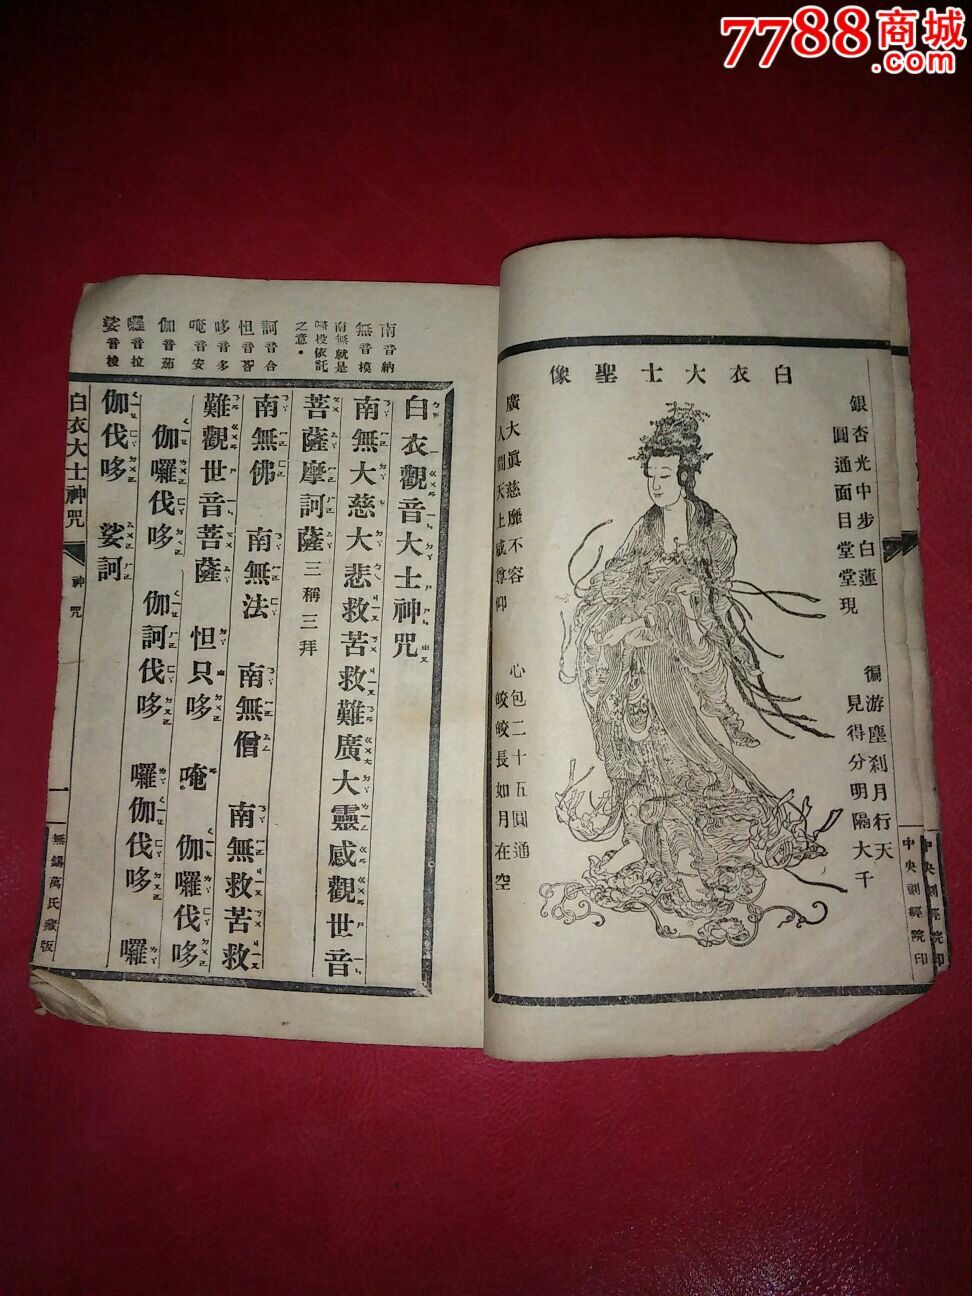 7788商城
.com
白衣大士聖像
銀杏光中步白蓮
圓通面目堂堂現
徧游塵刹月行天
見得分明隔大千
廣大眞慈靡不容
人間天上咸尊仰
心包二十五圓通
皎皎長如月在空
中央刻經院印
中央刻經院印
南音納
無音模
南無就是
皈投依託
之意。
訶音合
怛音答
哆音多
唵音安
伽音茄
囉音拉
娑音梭
白衣觀音大士神咒
南無大慈大悲救苦救難廣大靈感觀世音
菩薩摩訶薩 三稱三拜
南無佛 南無法 南無僧 南無救苦救
難觀世音菩薩 怛只哆 唵 伽囉伐哆
伽囉伐哆 伽訶伐哆 囉伽伐哆 囉
伽伐哆 娑訶
白衣大士神咒
神咒
一
無錫萬氏藏版